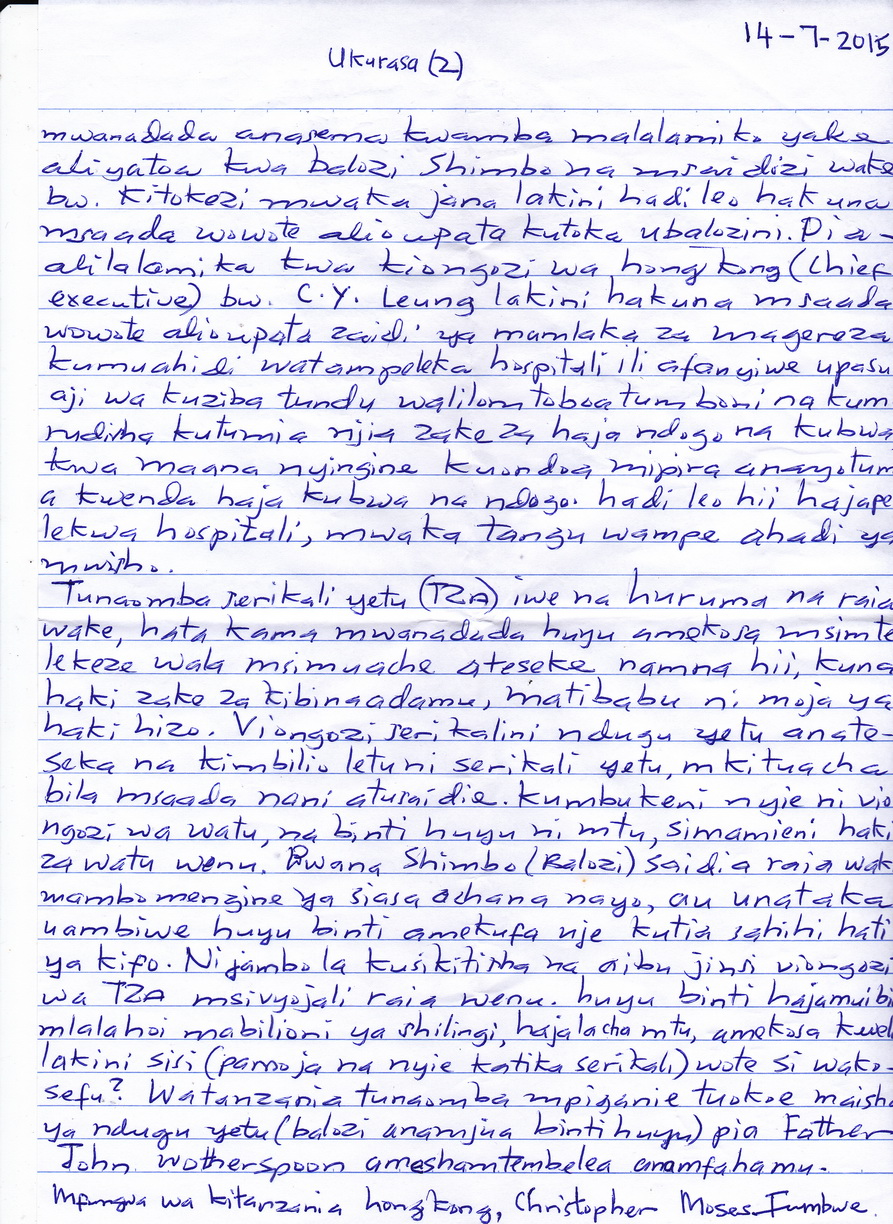 14-7-2015
Ukurasa (2)
mwanadada anasema kwamba malalamiko yake
aliyatoa kwa balozi Shimbo na msaidizi wake
bw. Kitokezi mwaka jana lakini hadi leo hakuna
msaada wowote alioupata kutoka ubalozini. Pia-
alilalamika kwa kiongozi wa hong kong (Chief
executive) bw. C.Y. Leung lakini hakuna msaada
wowote alioupata zaidi ya mamlaka za magereza
kumuahidi watampeleka hospitali ili afanyiwe upasu
aji wa kuziba tundu walilomtoboa tumboni na kum
rudisha kutumia njia zake za haja ndogo na kubwa
kwa maana nyingine kuondoa mipira anayotum
a kwenda haja kubwa na ndogo. hadi leo hii hajape
lekwa hospitali, mwaka tangu wampe ahadi ya
mwisho.
Tunaomba serikali yetu (TZA) iwe na huruma na raia
wake, hata kama mwanadada huyu amekosa msimte
lekeze wala msimuache ateseke namna hii, kuna
haki zake za kibinaadamu, matibabu ni moja ya
haki hizo. Viongozi serikalini ndugu yetu anate-
seka na kimbilio letu ni serikali yetu, mkituacha
bila msaada nani atusaidie. Kumbukeni nyie ni vio
ngozi wa watu, na binti huyu ni mtu, simamieni haki
za watu wenu. Bwana Shimbo (Balozi) saidia raia wak
mambo mengine ya siasa achana nayo, au unataka
uambiwe huyu binti amekufa nje kutia sahihi hati
ya kifo. Ni jambo la kusikitisha na aibu jinsi viongozi
wa TZA msivyojali raia wenu. huyu binti hajamuibi
mlalahoi mabilioni ya shilingi, hajalacha mtu, amekosa kwel
lakini sisi (pamoja na nyie katika serikali) wote si wako-
sefu? Watanzania tunaomba mpiganie tuokoe maisha
ya ndugu yetu (balozi anamjua binti huyu) pia Father
John Wotherspoon ameshamtembelea anamfahamu.
Mfungwa wa kitanzania hongkong, Christopher Moses Fumbwe.